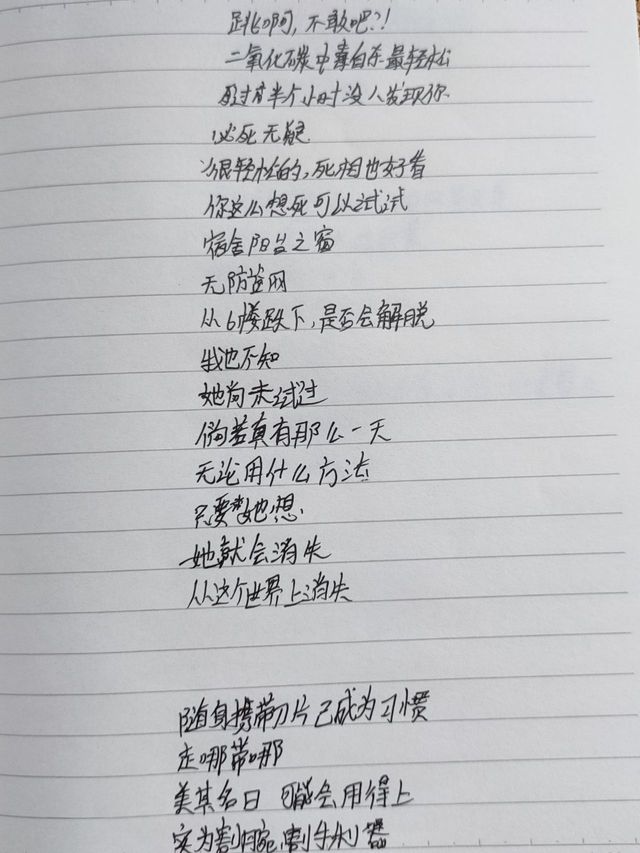 跳啊，不敢吧？！
二氧化碳中毒自杀最轻松
超过半个小时没人发现你
必死无疑
很轻松的，死相也好看
你这么想死可以试试
宿舍阳台之窗
无防盗网
从6楼跌下，是否会解脱
我也不知
她尚未试过
倘若真有那么一天
无论用什么方法
只要她想
她就会消失
从这个世界上消失
随身携带刀片已成为习惯
走哪带哪
美其名曰 可能会用得上
实为割腕割手利器